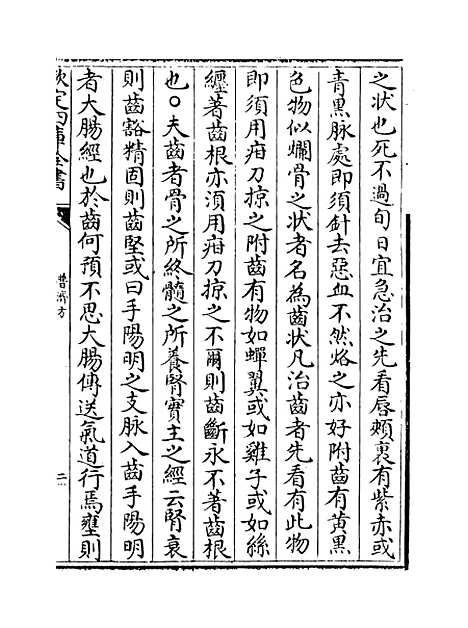 之状也死不過旬日宜急治之先看唇頰裏有紫赤或
青黑脉處即須針去惡血不然烙之亦好附齒有黄黑
色物似爛骨之状者名為齒状凡治齒者先看有此物
即須用疳刀掠之附齒有物如蟬翼或如雞子或如絲
纒著齒根亦須用疳刀掠之不爾則齒齗永不著齒根
也○夫齒者骨之所終髓之所養腎實主之經云腎衰
則齒豁精固則齒堅或曰手陽明之支脉入齒手陽明
者大腸經也於齒何預不思大腸傳送氣道行焉壅則
欽定四庫全書
普濟方
二